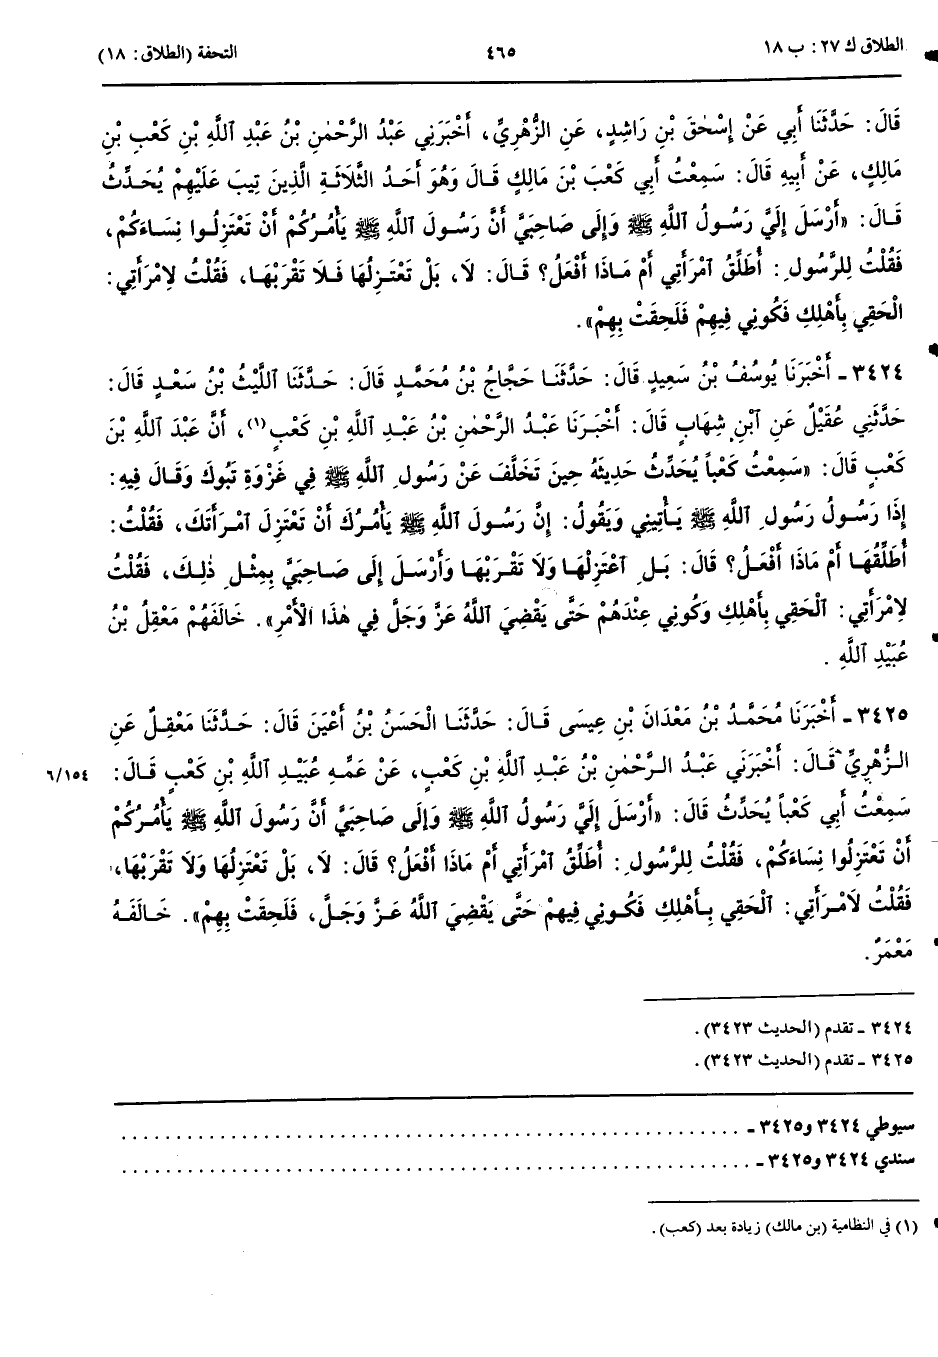 الطلاق ك ٢٧: ب ١٨ ٤٦٥ التحفة (الطلاق: ١٨)
قَالَ: حَدَّثَنَا أَبِي عَنْ إِسْحٰقَ بْنِ رَاشِدٍ، عَنِ الزُّهْرِيِّ، أَخْبَرَنِي عَبْدُ الرَّحْمٰنِ بْنُ عَبْدِ ٱللَّهِ بْنِ كَعْبِ بْنِ
مَالِكٍ، عَنْ أَبِيهِ قَالَ: سَمِعْتُ أَبِي كَعْبَ بْنَ مَالِكٍ قَالَ وَهُوَ أَحَدُ الثَّلَاثَةِ الَّذِينَ تِيبَ عَلَيْهِمْ يُحَدِّثُ
قَالَ: «أَرْسَلَ إِلَيَّ رَسُولُ ٱللَّهِ ﷺ وَإِلَى صَاحِبَيَّ أَنَّ رَسُولَ ٱللَّهِ ﷺ يَأْمُرُكُمْ أَنْ تَعْتَزِلُوا نِسَاءَكُمْ،
فَقُلْتُ لِلرَّسُولِ: أُطَلِّقُ ٱمْرَأَتِي أَمْ مَاذَا أَفْعَلُ؟ قَالَ: لَا، بَلْ تَعْتَزِلُهَا فَلَا تَقْرَبْهَا، فَقُلْتُ لِامْرَأَتِي:
الْحَقِي بِأَهْلِكِ فَكُونِي فِيهِمْ فَلَحِقَتْ بِهِمْ».
٣٤٢٤ - أَخْبَرَنَا يُوسُفُ بْنُ سَعِيدٍ قَالَ: حَدَّثَنَا حَجَّاجُ بْنُ مُحَمَّدٍ قَالَ: حَدَّثَنَا اللَّيْثُ بْنُ سَعْدٍ قَالَ:
حَدَّثَنِي عُقَيْلٌ عَنِ ٱبْنِ شِهَابٍ قَالَ: أَخْبَرَنَا عَبْدُ الرَّحْمٰنِ بْنُ عَبْدِ ٱللَّهِ بْنِ كَعْبٍ(١)، أَنَّ عَبْدَ ٱللَّهِ بْنَ
كَعْبٍ قَالَ: «سَمِعْتُ كَعْباً يُحَدِّثُ حَدِيثَهُ حِينَ تَخَلَّفَ عَنْ رَسُولِ ٱللَّهِ ﷺ فِي غَزْوَةِ تَبُوكَ وَقَالَ فِيهِ:
إِذَا رَسُولُ رَسُولِ ٱللَّهِ ﷺ يَأْتِينِي وَيَقُولُ: إِنَّ رَسُولَ ٱللَّهِ ﷺ يَأْمُرُكَ أَنْ تَعْتَزِلَ ٱمْرَأَتَكَ، فَقُلْتُ:
أُطَلِّقُهَا أَمْ مَاذَا أَفْعَلُ؟ قَالَ: بَلِ ٱعْتَزِلْهَا وَلَا تَقْرَبْهَا وَأَرْسَلَ إِلَى صَاحِبَيَّ بِمِثْلِ ذٰلِكَ، فَقُلْتُ
لِامْرَأَتِي: ٱلْحَقِي بِأَهْلِكِ وَكُونِي عِنْدَهُمْ حَتَّى يَقْضِيَ اللَّهُ عَزَّ وَجَلَّ فِي هٰذَا الْأَمْرِ». خَالَفَهُمْ مَعْقِلُ بْنُ
عُبَيْدِ ٱللَّهِ.
٣٤٢٥ - أَخْبَرَنَا مُحَمَّدُ بْنُ مَعْدَانَ بْنِ عِيسَى قَالَ: حَدَّثَنَا الْحَسَنُ بْنُ أَعْيَنَ قَالَ: حَدَّثَنَا مَعْقِلٌ عَنِ
الزُّهْرِيِّ قَالَ: أَخْبَرَنِي عَبْدُ الرَّحْمٰنِ بْنُ عَبْدِ ٱللَّهِ بْنِ كَعْبٍ، عَنْ عَمِّهِ عُبَيْدِ ٱللَّهِ بْنِ كَعْبٍ قَالَ: ٦/١٥٤
سَمِعْتُ أَبِي كَعْباً يُحَدِّثُ قَالَ: «أَرْسَلَ إِلَيَّ رَسُولُ ٱللَّهِ ﷺ وَإِلَى صَاحِبَيَّ أَنَّ رَسُولَ ٱللَّهِ ﷺ يَأْمُرُكُمْ
أَنْ تَعْتَزِلُوا نِسَاءَكُمْ، فَقُلْتُ لِلرَّسُولِ: أُطَلِّقُ ٱمْرَأَتِي أَمْ مَاذَا أَفْعَلُ؟ قَالَ: لَا، بَلْ تَعْتَزِلُهَا وَلَا تَقْرَبْهَا،
فَقُلْتُ لِامْرَأَتِي: ٱلْحَقِي بِأَهْلِكِ فَكُونِي فِيهِمْ حَتَّى يَقْضِيَ اللَّهُ عَزَّ وَجَلَّ، فَلَحِقَتْ بِهِمْ». خَالَفَهُ
مَعْمَرٌ.
٣٤٢٤ - تقدم (الحديث ٣٤٢٣).
٣٤٢٥ - تقدم (الحديث ٣٤٢٣).
سيوطي ٣٤٢٤ و٣٤٢٥ - ........................................
سندي ٣٤٢٤ و٣٤٢٥ - ........................................
(١) في النظامية (بن مالك) زيادة بعد (كعب).